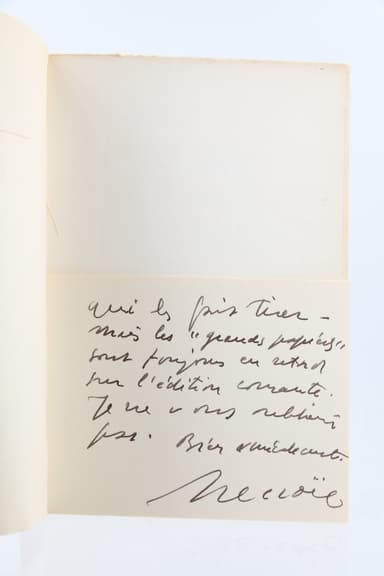 qui les fais tirer –
mais les "grands papiers"
sont toujours en retard
sur l'édition courante.
Je ne vous oublierai
pas. Bien amicalement.